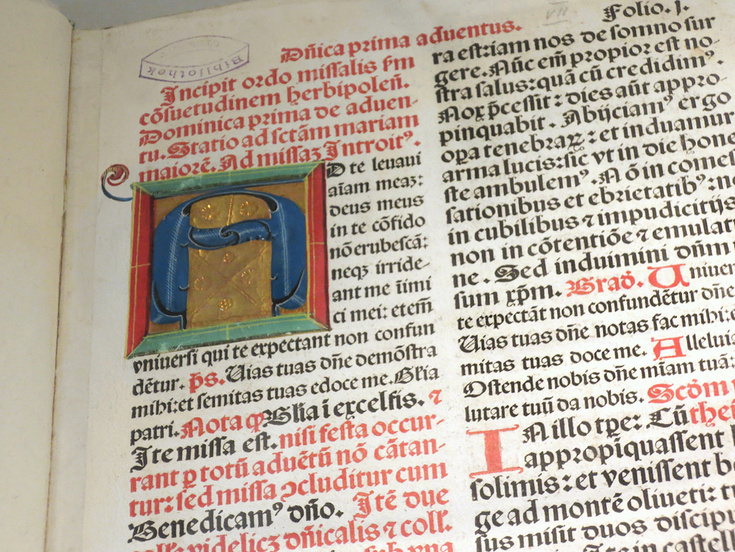 Bibliothek
VII
Folio. j.
Dñica prima aduentus.
Incipit ordo missalis ẜm
cõsuetudinem herbipoleñ.
Dominica prima de aduen-
tu. Statio ad sctãm mariam
maiorẽ. Ad missaʒ Introitꝰ.
D te leuaui
aĩam meaʒ:
deus meus
in te cõfido
nõ erubescã:
neqʒ irride-
ant me iĩmi
ci mei: etem̃
vniuersi qui te expectant non confun
dẽtur. p̄s. Uias tuas dñe demõstra
mihi: et semitas tuas edoce me. Glĩa
patri. Nota ꝙ Glĩa ĩ excelsis. ⁊
Ite missa est. nisi festa occur-
rant ꝑ totũ aduẽtũ nõ cãtan-
tur: sed missa ↄcluditur cum
Benedicamꝰ dño. Itẽ due
coll̃. videlicʒ dñicalis ⁊ coll̃.
ra est: iam nos de somno sur
gere. Nũc em̃ propior est no-
stra salus: quã cũ credidimꝰ.
Nox p̃cessit: dies aũt appro-
pinquabit. Abijciamꝰ ergo
oꝑa tenebraꝝ: et induamur
arma lucis: sic vt in die hone
ste ambulemꝰ. Nõ in comes
sationibus et ebrietatibꝰ: no
in cubilibus ⁊ impudicitijs
non in cõtentiõe ⁊ emulat
ne. Sed induimini dñm
sum xp̃m. Grad̃. Uniuer
te expectãt non confundẽtur dñe
Uias tuas dñe notas fac mihi: e
mitas tuas doce me. Alleluia
Ostende nobis dñe miam tuã:
lutare tuũ da nobis. Scd̃m
IN illo tꝑe: Cũ
appropĩquassent
solimis: et venissent b
ge ad montẽ oliueti: t
sus misit duos discip